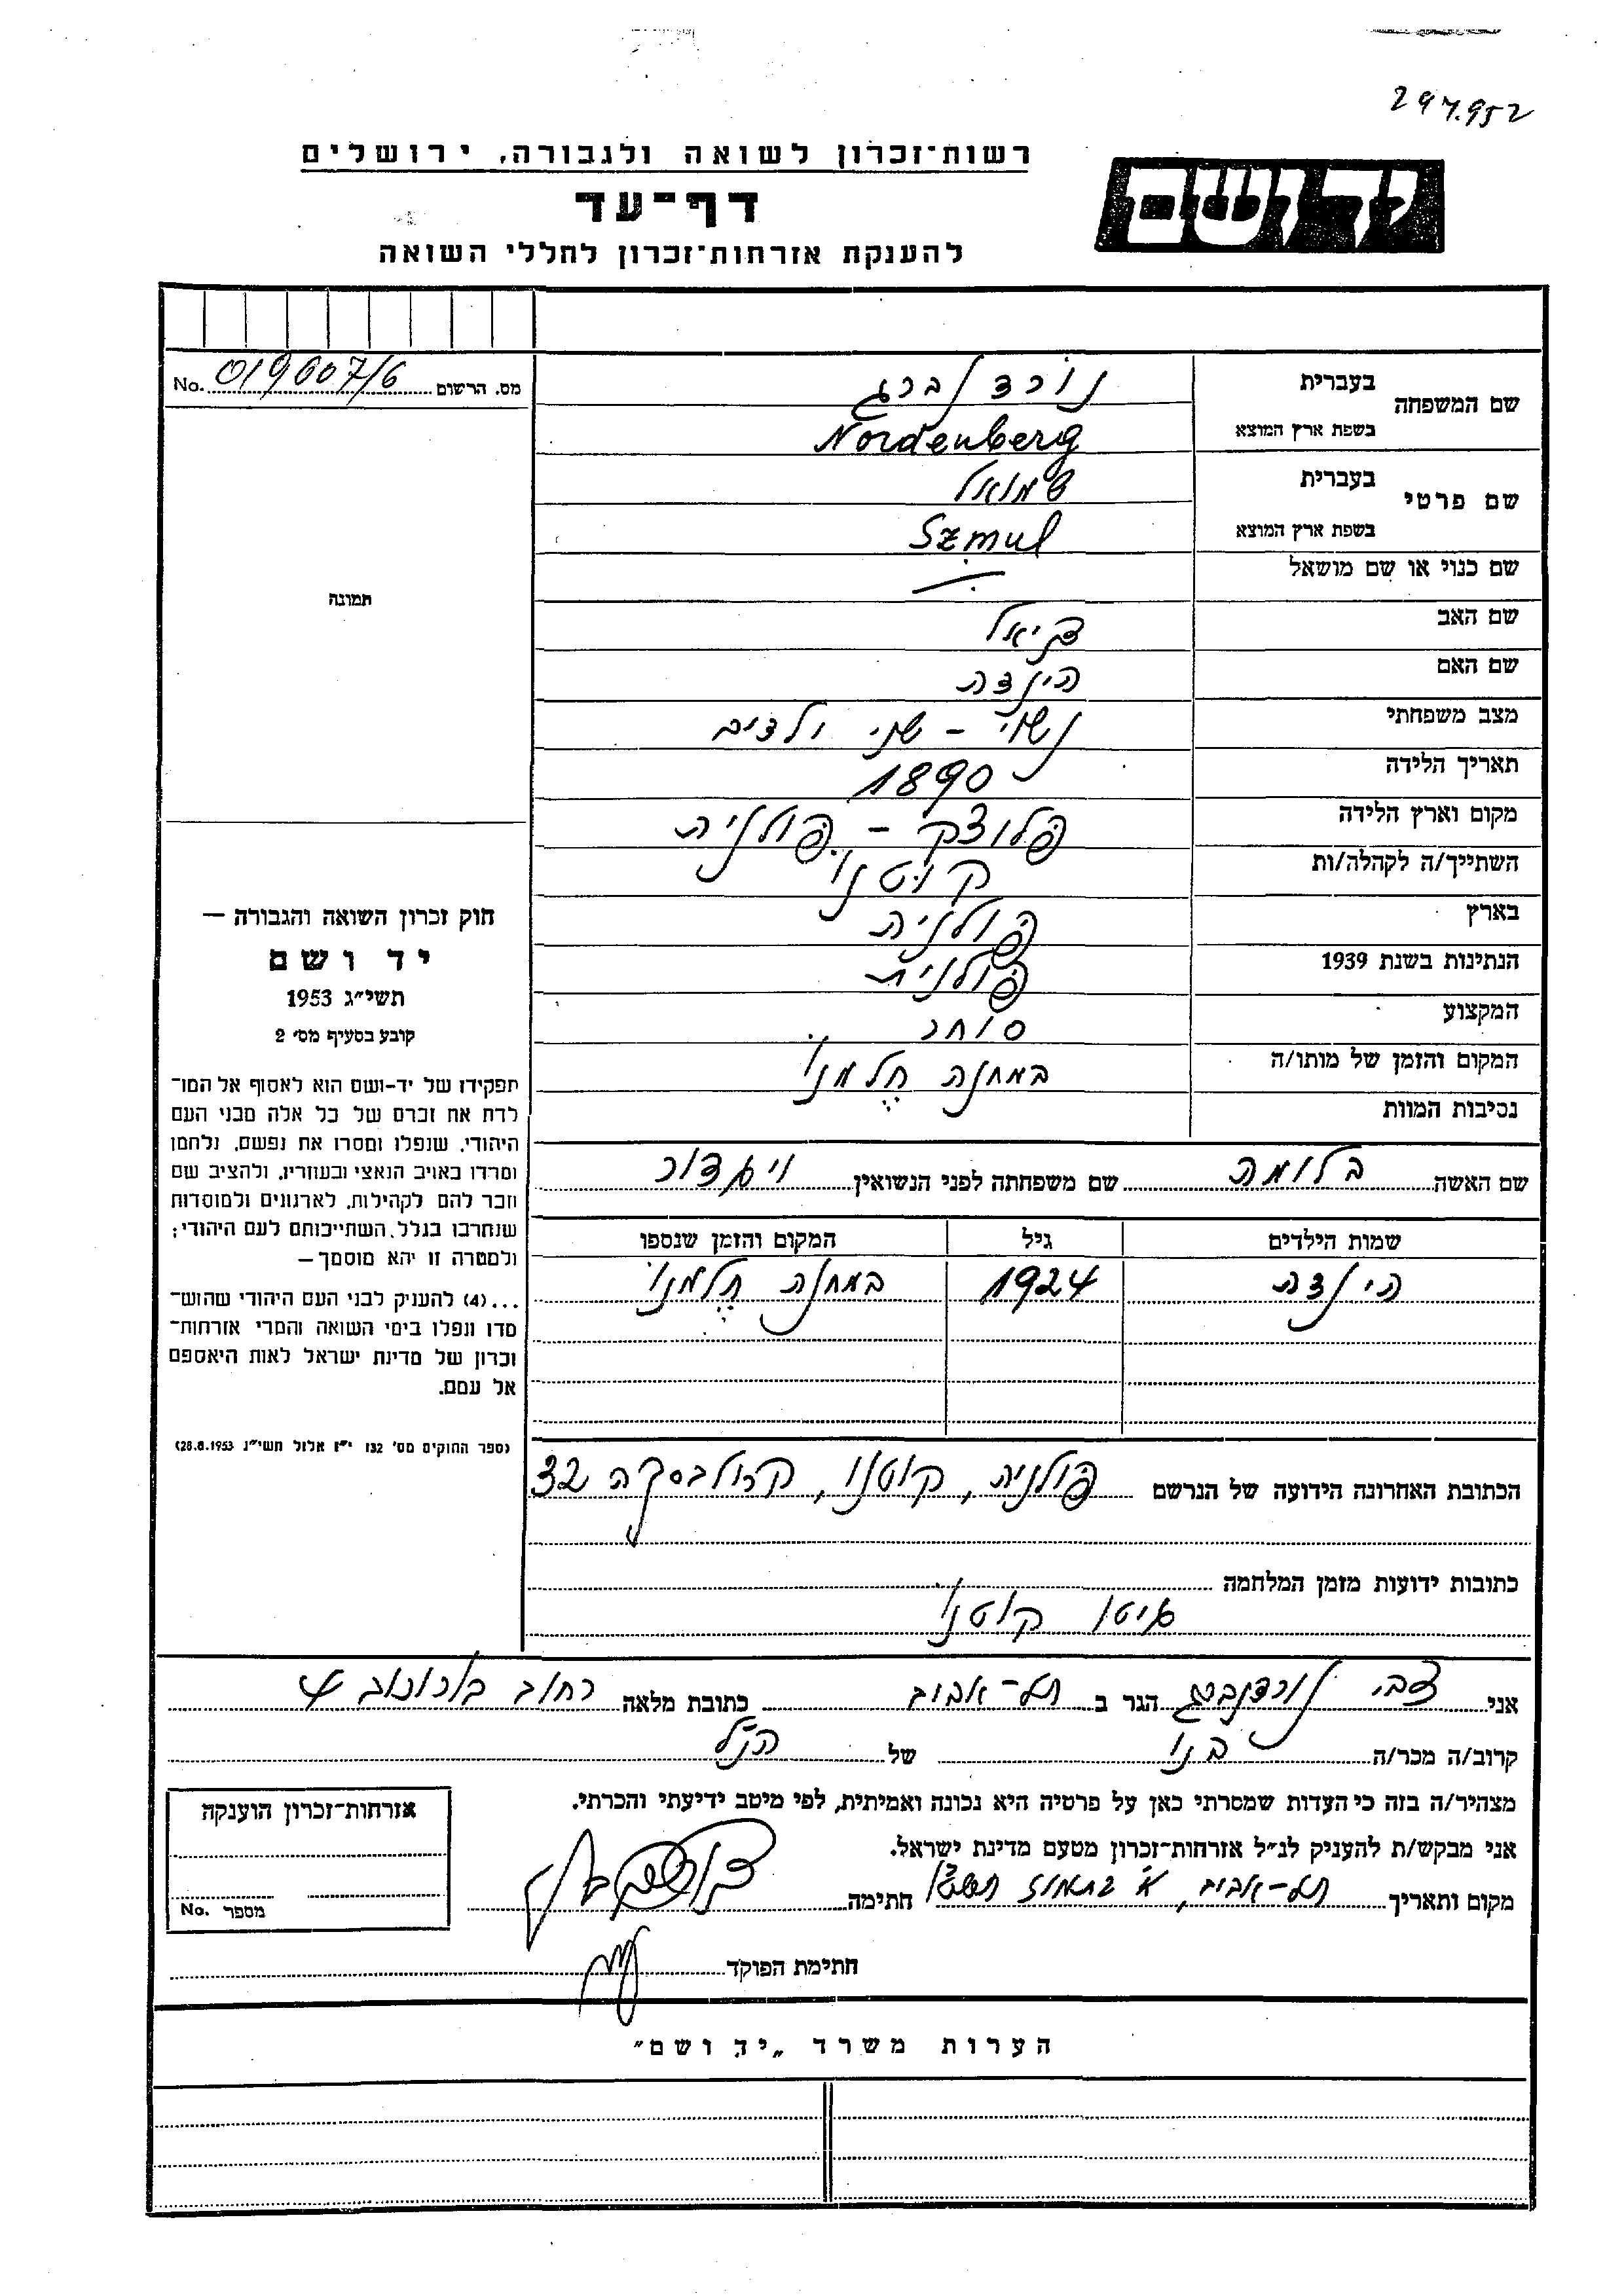 297.952
יד ושם
רשות־זכרון לשואה ולגבורה, ירושלים
דף־עד
להענקת אזרחות־זכרון לחללי השואה
מס. הרשום 019607/6 No.
תמונה
שם המשפחה
בעברית נורדנברג
בשפת ארץ המוצא Nordenberg
שם פרטי
בעברית שמואל
בשפת ארץ המוצא Szmul
שם כנוי או שם מושאל —
שם האב
שם האם הינדה
מצב משפחתי נשוי – שני ילדים
תאריך הלידה 1890
מקום וארץ הלידה פלוצק – פולניה
השתייך/ה לקהלה/ות קוטנו
בארץ פולניה
הנתינות בשנת 1939 פולנית
המקצוע סוחר
המקום והזמן של מותו/ה במחנה חלמנו
נסיבות המוות
שם האשה בלומה שם משפחתה לפני הנשואין
שמות הילדים גיל המקום והזמן שנספו
הינדה 1924 במחנה חלמנו
הכתובת האחרונה הידועה של הנרשם פולניה, קוטנו, קרולבסקה 32
כתובות ידועות מזמן המלחמה
גיטו קוטנו
חוק זכרון השואה והגבורה —
יד ושם
תשי״ג 1953
קובע בסעיף מס׳ 2
תפקידו של יד-ושם הוא לאסוף אל המו־
לדת את זכרם של כל אלה מבני העם
היהודי, שנפלו ומסרו את נפשם, נלחמו
ומרדו באויב הנאצי ובעוזריו, ולהציב שם
וזכר להם לקהילות, לארגונים ולמוסדות
שנחרבו בגלל השתייכותם לעם היהודי;
ולמטרה זו יהא מוסמך —
...(4) להעניק לבני העם היהודי שהוש־
מדו ונפלו בימי השואה והמרי אזרחות־
זכרון של מדינת ישראל לאות היאספם
אל עמם.
(ספר החוקים מס׳ 132 י״ז אלול תשי״ג 28.8.1953)
אני צבי נורדנברג הגר ב תל-אביב כתובת מלאה רחוב 4
קרוב/ה מכר/ה בנו של הנ״ל
מצהיר/ה בזה כי העדות שמסרתי כאן על פרטיה היא נכונה ואמיתית, לפי מיטב ידיעתי והכרתי.
אני מבקש/ת להעניק לנ״ל אזרחות־זכרון מטעם מדינת ישראל.
מקום ותאריך תל-אביב, א׳ בתמוז חתימה
חתימת הפוקד
אזרחות־זכרון הוענקה
מספר No.
הערות משרד „יד ושם״